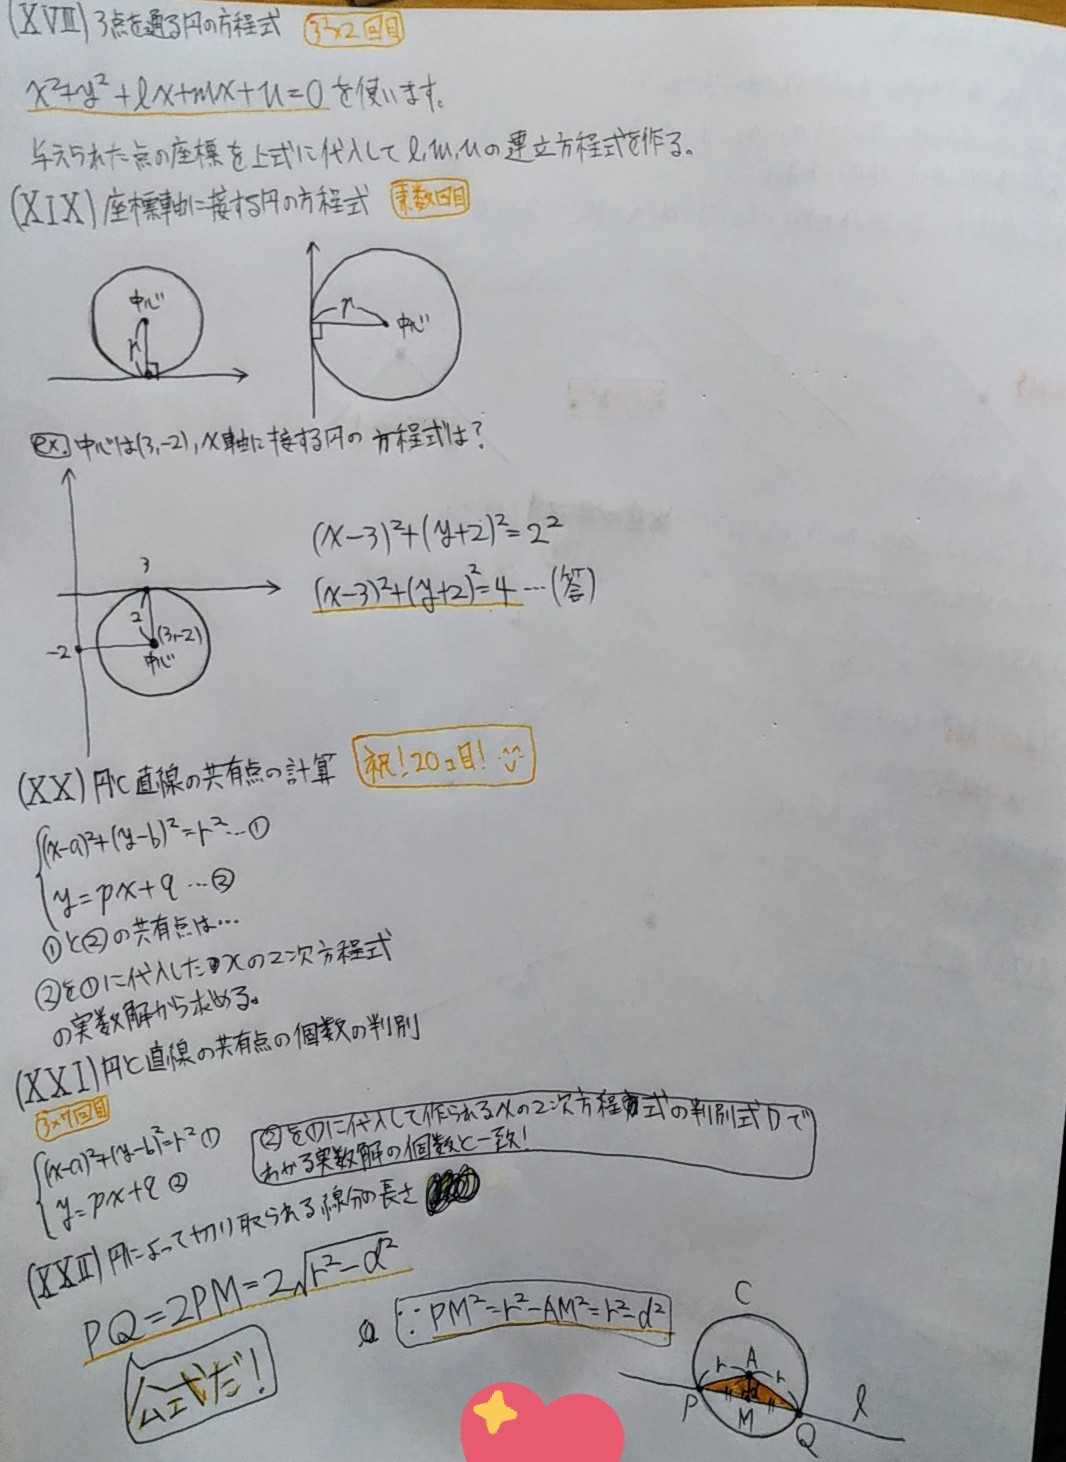 (XVIII) 3点を通る円の方程式 3²×2回目
x²+y²+lx+mx+n=0を使います。
与えられた点の座標を上式に代入してl,m,nの連立方程式を作る。
(XIX) 座標軸に接する円の方程式 素数回目
中心 r
r 中心
ex. 中心は(3,-2), x軸に接する円の方程式は?
3
2
(3,-2)
中心
-2
(x-3)²+(y+2)²=2²
(x-3)²+(y+2)²=4 …(答)
(XX) 円と直線の共有点の計算 祝!20コ目!
(x-a)²+(y-b)²=r²…①
y=px+q …②
①と②の共有点は…
②を①に代入したxの2次方程式
の実数解から求める。
(XXI) 円と直線の共有点の個数の判別
3×7回目
(x-a)²+(y-b)²=r² ①
y=px+q ②
②を①に代入して作られるxの2次方程式の判別式Dで
わかる実数解の個数と一致!
(XXII) 円によって切り取られる線分の長さ
PQ=2PM=2√r²-d²
∵PM²=r²-AM²=r²-d²
公式だ!
C
r A r
d
P M Q l